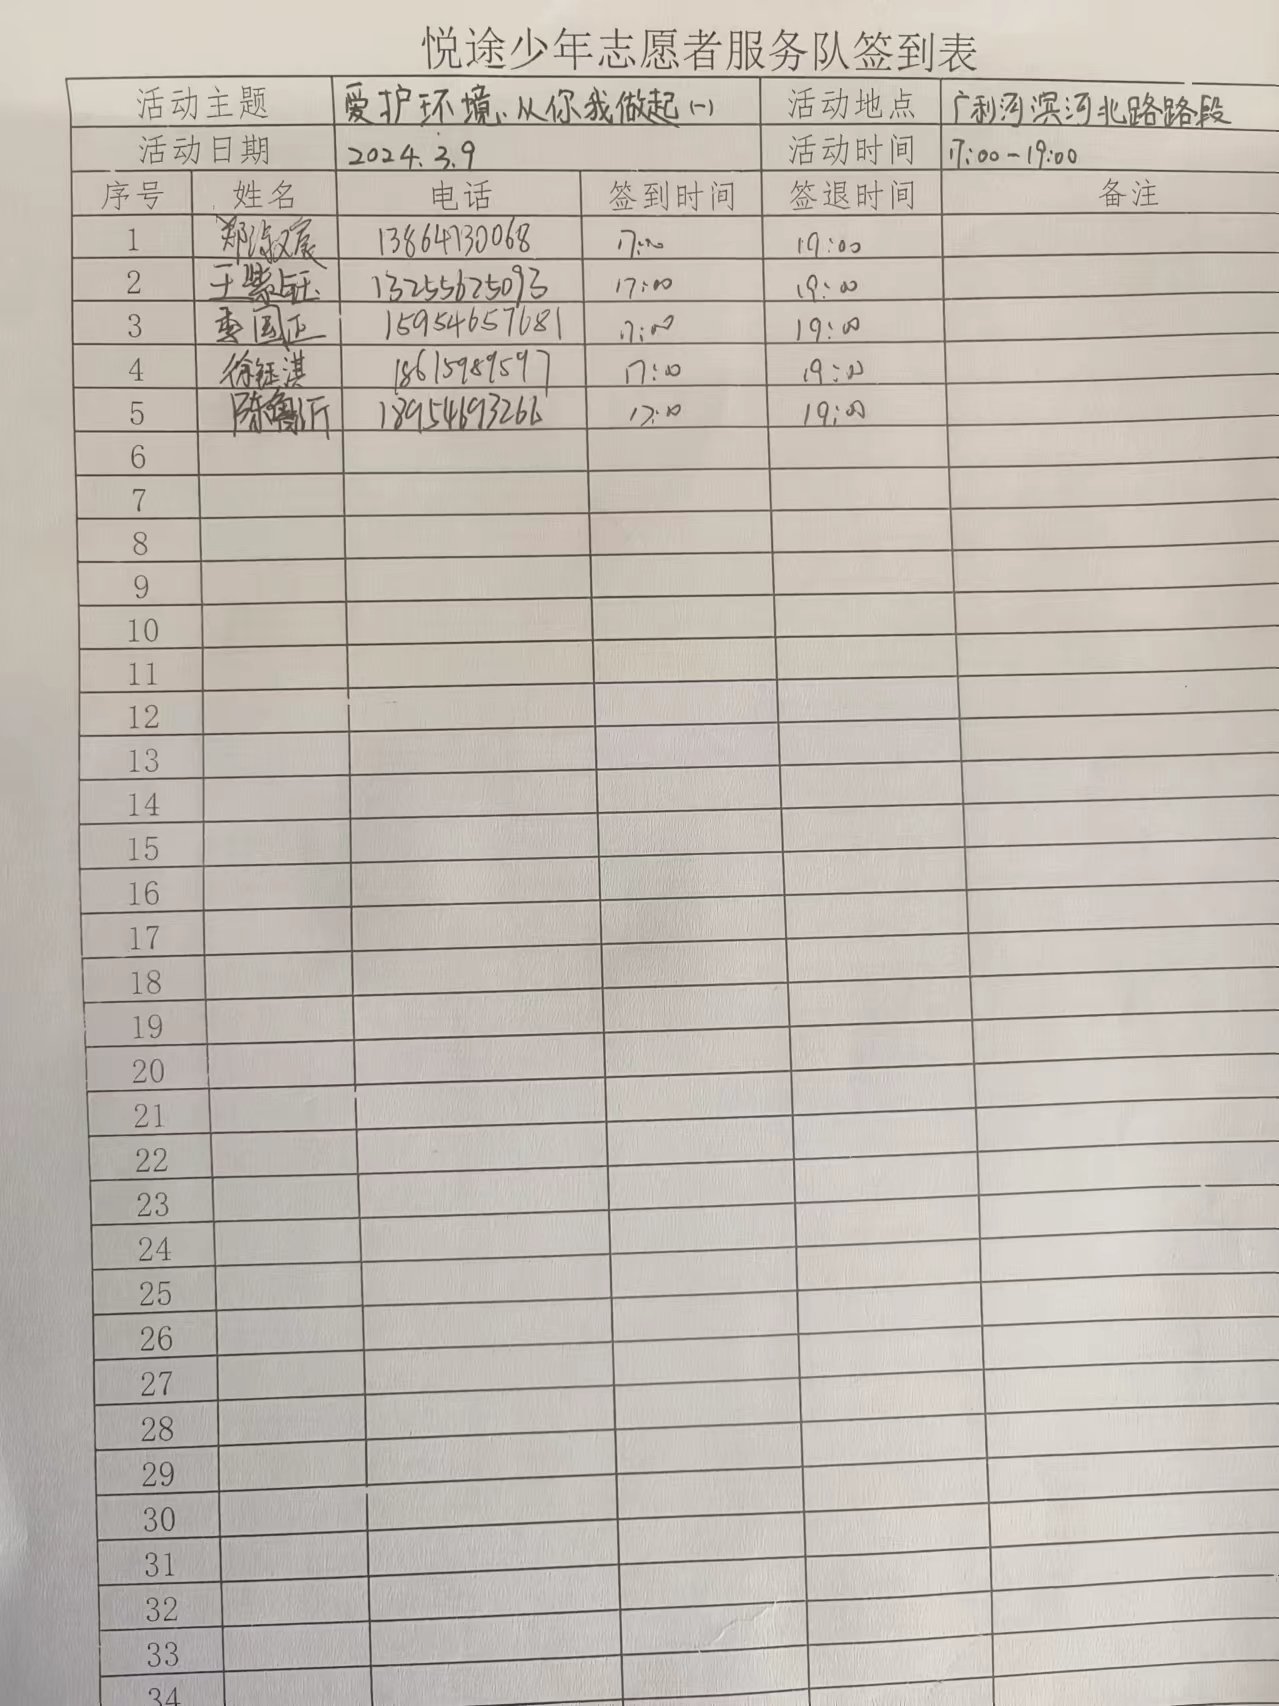 悦途少年志愿者服务队签到表
活动主题 爱护环境、从你我做起(一) 活动地点 广利河滨河北路路段
活动日期 2024.3.9 活动时间 17:00-19:00
序号 姓名 电话 签到时间 签退时间 备注
1 郑淑宸 13864730068 17:00 19:00
2 王紫钰 13255625093 17:00 19:00
3 国正 15954657681 17:00 19:00
4 徐钰淇 18615989597 17:00 19:00
5 陈鲁沂 18954693266 17:00 19:00
6
7
8
9
10
11
12
13
14
15
16
17
18
19
20
21
22
23
24
25
26
27
28
29
30
31
32
33
34